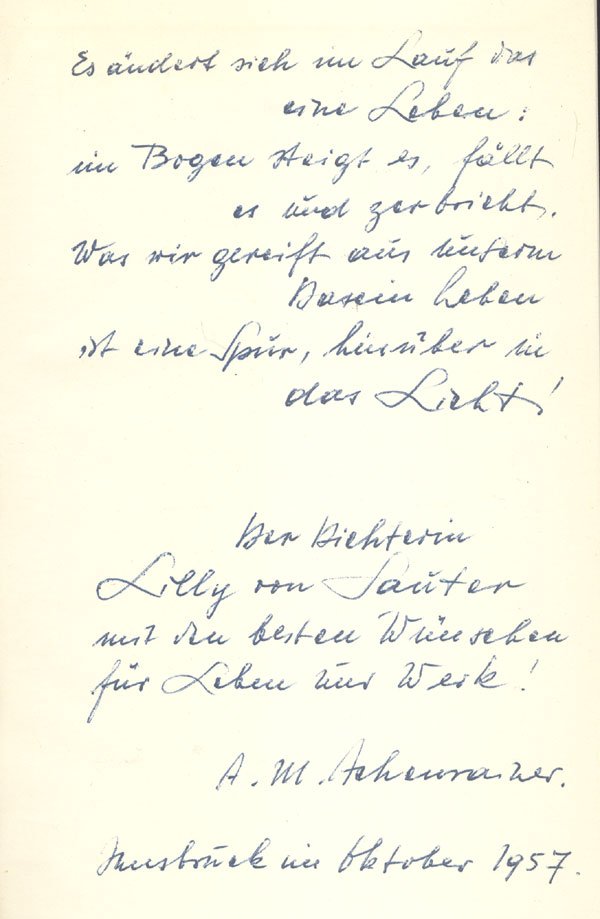 Es ändert sich im Lauf das
eine Leben:
im Bogen steigt es, fällt
es und zerbricht.
Was wir gereift aus unserm
Dasein heben
ist eine Spur, hinüber in
das Licht!
Der Dichterin
Lilly von Sauter
mit den besten Wünschen
für Leben und Werk!
A. M. Achenrainer.
Innsbruck im Oktober 1957.